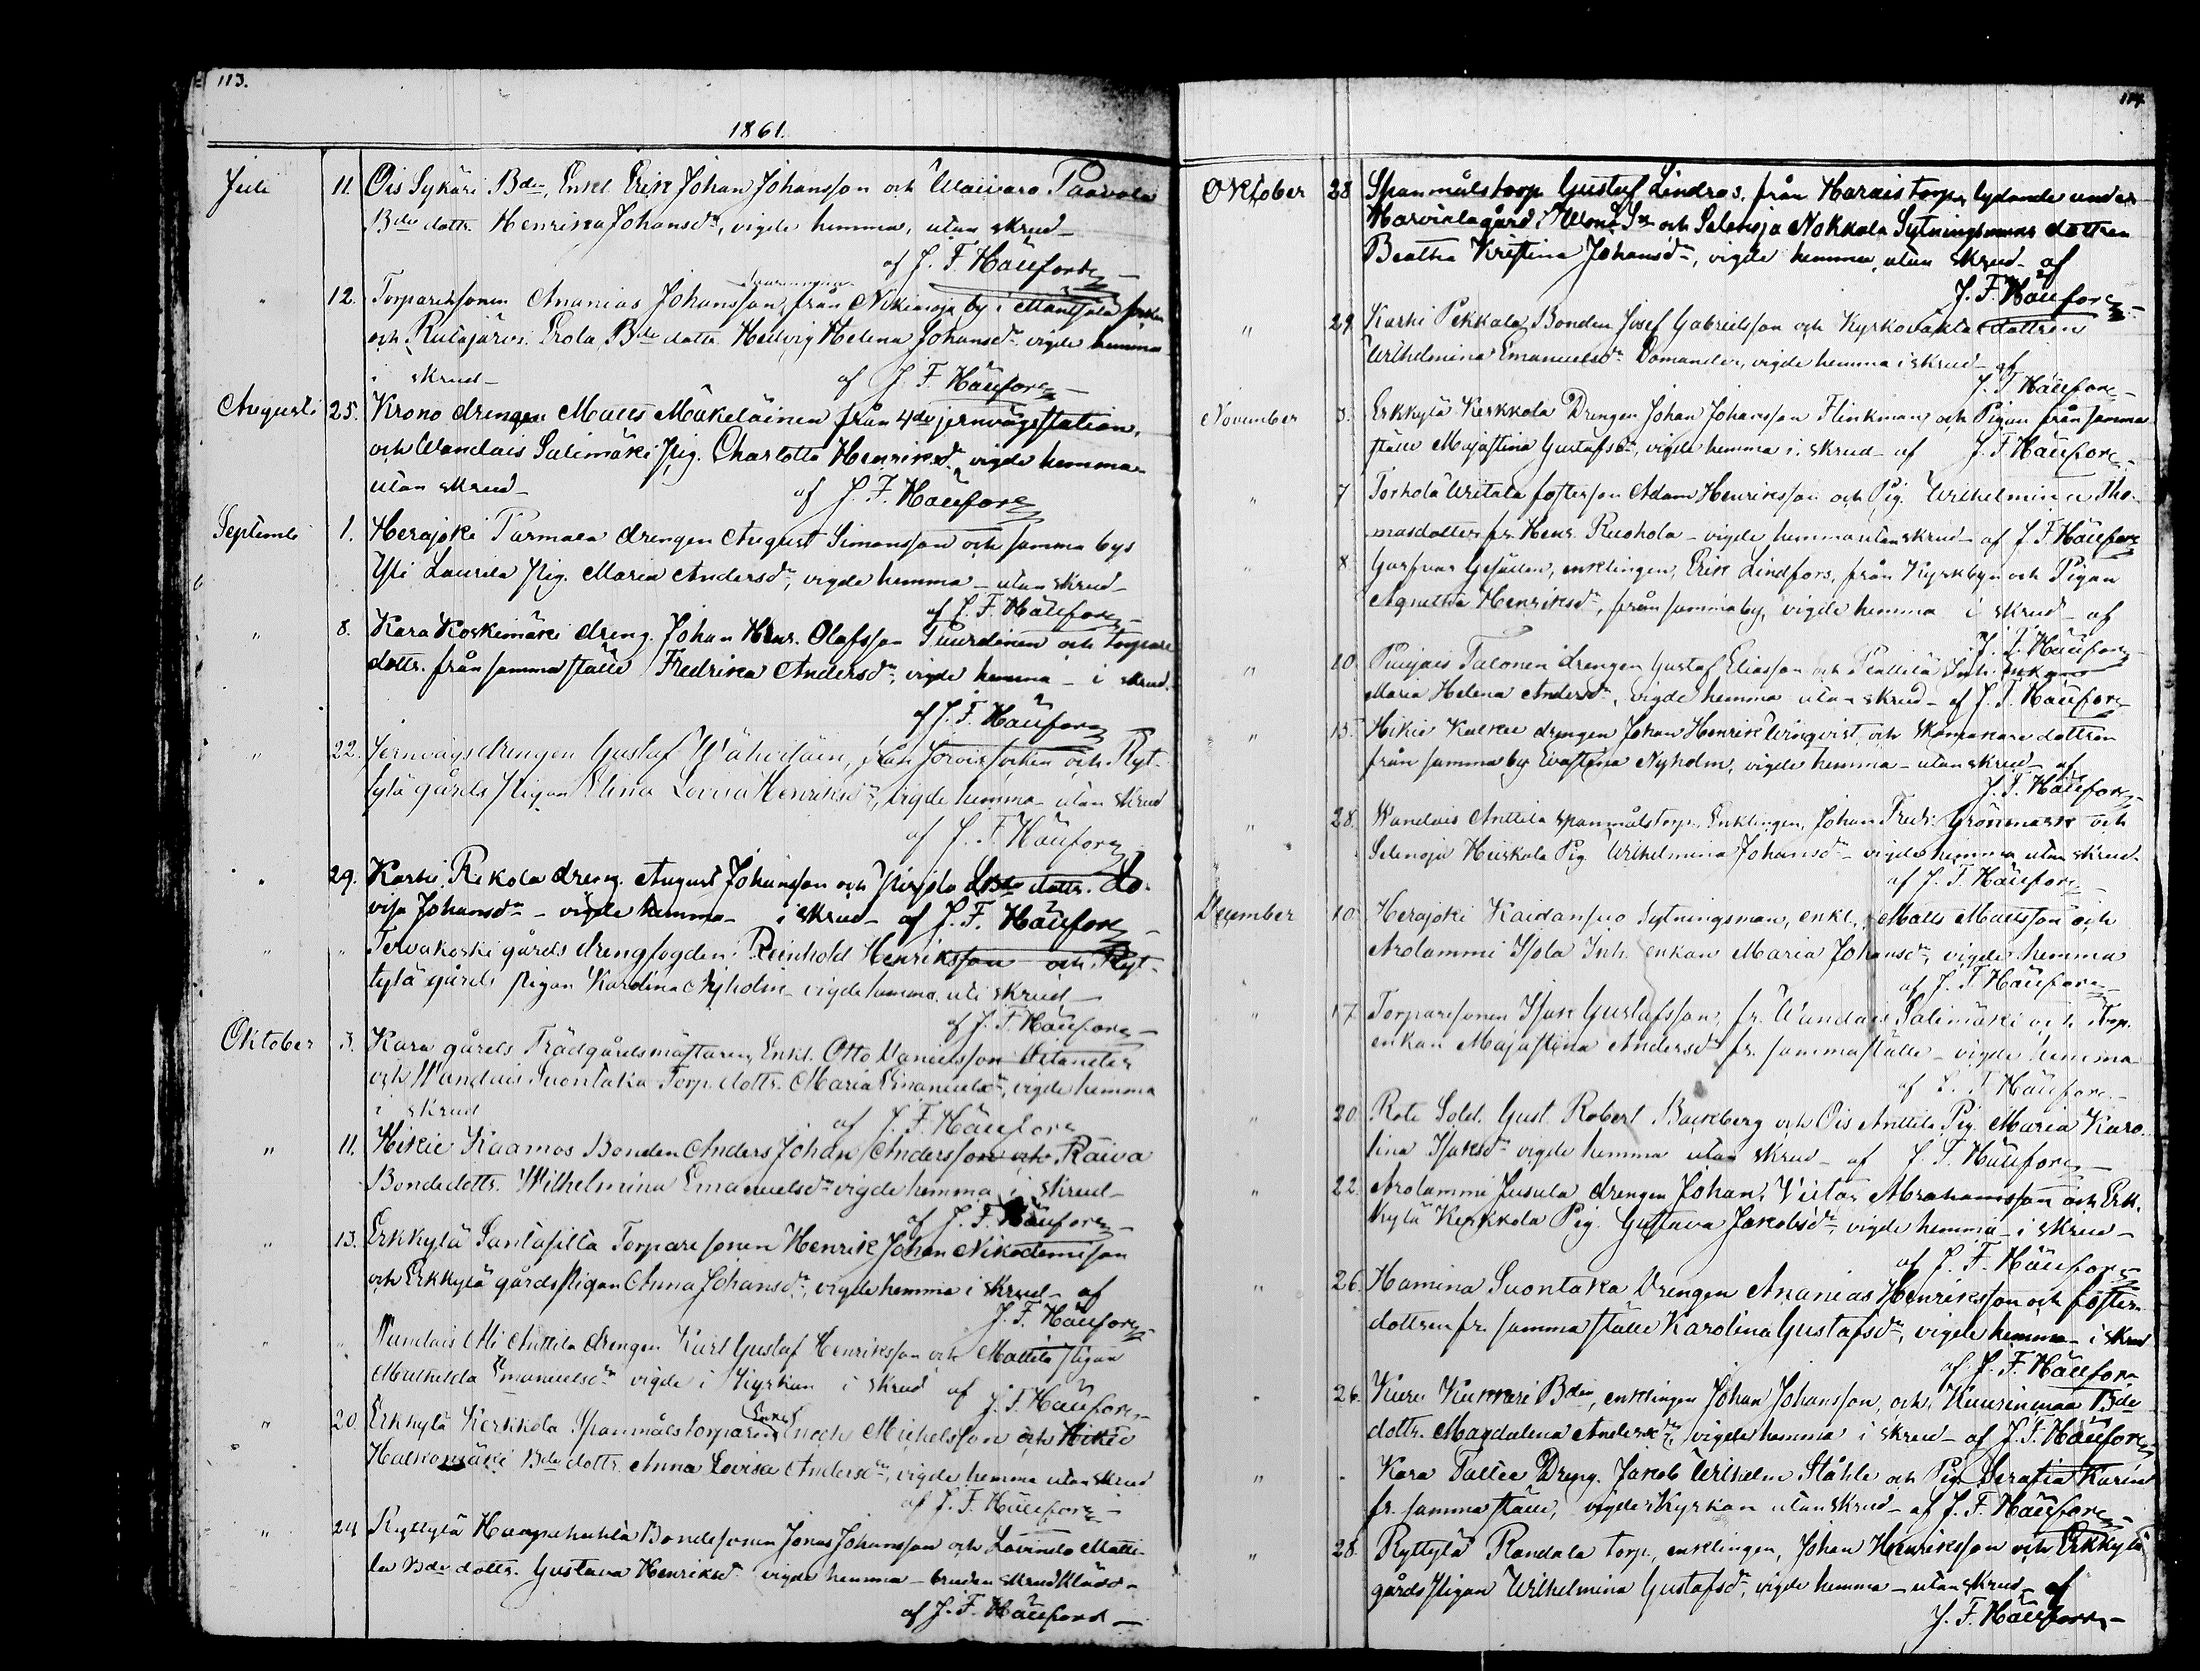 113.
1861.
Juli 11. Ois Sykäri Bdn, Enkl Erik Johan Johansson och Waivaro Paavola
Bde dottr. Henrika Johansdr, vigde hemma, utan skrud
af J. F. Häuf
" 12. Torparesonen Ananias Johansson, från Nikinoja by i Mäntsälä
och Rutajärvi Erola, Bde dottr Hedvig Helena Johansdr vigde hemma
i skrud af J. F. Häuf
Augusti 25. Krono drengen Matts Mäkeläinen från 4de jernvägsstation,
och Wandais Salimäki pig. Charlotta Henriksdr vigde hemma
utan skrud af J. F. Häuf
September 1. Herajoki Parmala drengen August Simonsson och samma bys
Yli Laurila pig. Maria Andersdr, vigde hemma utan skrud
af J. F. Häuf
" 8. Kara Koskimäki dreng. Johan Henr. Olafsson och torpare
dottr. från samma ställe Fredrika Andersdr, vigde hemma i skrud.
af J. F. Häuf
" 22. Jernvägsdrengen Gustaf från socken och Ryt-
tylä gårds pigan Elina Lovisa Henriksdr, vigde hemma utan skrud
af J. F. Häuf
" 29. Karhi Rekola dreng. August Johansson och dottr. Lo-
visa Johansdr vigde hemma i skrud af J. F. Häuf
" " Tervakoski gårds drengfogden Reinhold Henriksson och Ryt-
tylä gårds pigan Karolina Nyholm vigde hemma uti skrud
af J. F. Häuf
Oktober 3. Kara gårds Trädgårdsmästaren, Enkl. Otto Danielsson
och Wandais Suontaka Torp. dottr. Maria Emanuelsdr, vigde hemma
i skrud af J. F. Häuf
" 11. Hikiä Kaamos Bonden Anders Johan Andersson och Raiva
Bondedottr. Wilhelmina Emanuelsdr vigde hemma i skrud
af J. F. Häuf
" 13. Erkkylä Santasilta Torparesonen Henrik Johan Nikodemisson
och Erkkylä gårds pigan Anna Johansdr, vigde hemma i skrud af
J. F. Häuf
" " Wandais Anttila drengen Karl Gustaf Henriksson och Mattila pigan
Mathilda Emanuelsdr vigde i Kyrkan i skrud af J. F. Häuf
" 20. Erkkylä Kerkkola Spanmålstorparen Enkl Enoch Michelsson och Hikiä
Bde dottr. Anna Lovisa Andersdr, vigde hemma utan skrud
af J. F. Häuf
" 24 Ryttylä Haapahuhta Bondesonen Jonas Johansson och Matti-
la Bde dottr. Gustava Henriksdr vigde hemma bruden skrudklädd
af J. F. Häuf
114.
Oktober 28. Spanmålstorp Gustaf Lindros, från Harais torp, lydande under
Harviala gård i Sn och Selänoja Nokkala Sytningsmans dottren
Beatha Kristina Johansdr, vigde hemma, utan skrud af
J. F. Häuf
" 29. Karhi Pekkala Bonden Josef Gabrielsson och Kyrkovakta dottren
Wilhelmina Emanuelsdr vigde hemma i skrud af
J. F. Häuf
November 3. Erkkylä Kerkkola Drengen Johan Johansson Flinkman och Pigan från samma
ställe Majastina Gustafsdr, vigde hemma i skrud af J. F. Häuf
" 7 Torhola Uutala fosterson Adam Henriksson och Pig. Wilhelmina Tho-
masdotter fr. Hens. Ruohola vigde hemma utan skrud af J. F. Häuf
" 8 Garfvar Gesällen, enklingen, Erik Lindfors, från Kyrkbyn och Pigan
Agnetha Henriksdr, från samma by, vigde hemma i skrud af
J. F. Häuf
" 10. Puujais Talonen drengen Gustaf Eliasson och Inh. enkan
Maria Helena Andersdr, vigde hemma utan skrud af J. F. Häuf
" 15. Hikiä drengen Johan Henrik och Skomakare dottren
från samma by Evastina Nyholm, vigde hemma utan skrud af
J. F. Häuf
" 28. Wandais Anttila spanmålstorp., Enklingen, Johan Fredr. Grönmark och
Selänoja Heiskala Pig. Wilhelmina Johansdr vigde hemma utan skrud
af J. F. Häuf
December 10. Herajoki Kaidansuo Sytningsman, enkl., Matts Mattsson och
Arolammi Isola Inh. enkan Maria Johansdr, vigde hemma
af J. F. Häuf
" 17. Torparesonen Isak Gustafsson, fr. Wandais Salimäki och Torp.
enkan Majastina Andersdr fr. samma ställe vigde hemma
af J. F. Häuf
" 20. Rote Sold. Gust. Robert och Ois Anttila Pig. Maria Karo-
lina Isaksdr vigde hemma utan skrud af J. F. Häuf
" 22. Arolammi Jusula drengen Johan Victor Abrahamsson och Erk-
kylä Kerkkola Pig. Gustava Jakobsdr, vigde hemma i skrud
af J. F. Häuf
" 26. Hamina Suontaka Drengen Ananias Henriksson och foster-
dottren fr. samma ställe Karolina Gustafsdr, vigde hemma i skrud
af J. F. Häuf
" 26. Kuru Bdn, enklingen Johan Johansson, och Bde
dottr. Magdalena Andersdr, vigde hemma i skrud af J. F. Häuf
" - Kara Dreng. Jakob Wilhelm Ståhle och Pig. Serafia Karin
fr. samma ställe, vigde i Kyrkan utan skrud af J. F. Häuf
" 28. Ryttylä Randala torp., enklingen, Johan Henriksson och Erkkylä
gårds pigan Wilhelmina Gustafsdr, vigde hemma utan skrud af
J. F. Häuf